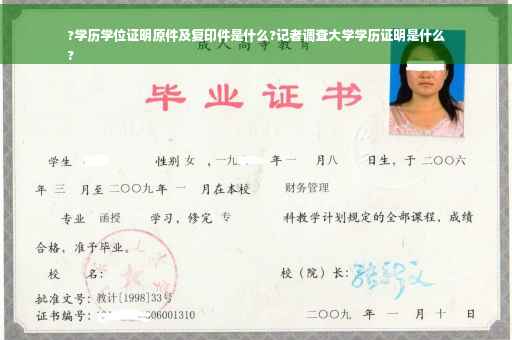 ?学历学位证明原件及复印件是什么?记者调查大学学历证明是什么
?
成人高等教育
毕业证书
学生 性别 女 ，一九 年一 月八 日生，于二〇〇六
年 三 月至二〇〇九年 一 月在本校 财务管理
专业 函授 学习，修完 专 科教学计划规定的全部课程，成绩
合格，准予毕业。
校 名： 校（院）长：
批准文号：教计[1998]33号
证书编号： 06001310 二〇〇九 年 一 月 十 日